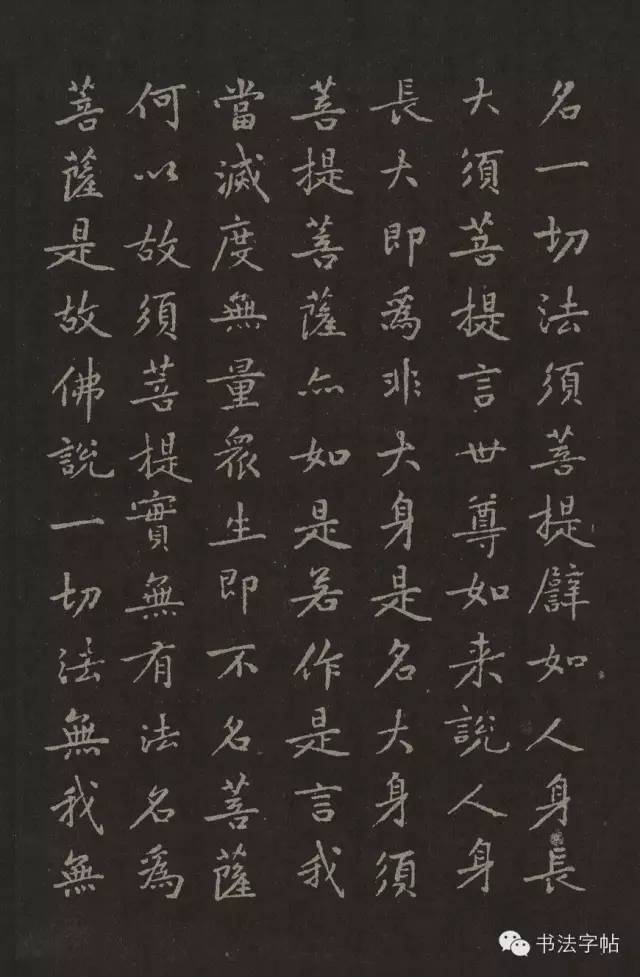 名一切法須菩提譬如人身長
大須菩提言世尊如来說人身
長大即為非大身是名大身須
菩提菩薩亦如是若作是言我
當滅度無量眾生即不名菩薩
何以故須菩提實無有法名為
菩薩是故佛說一切法無我無
书法字帖